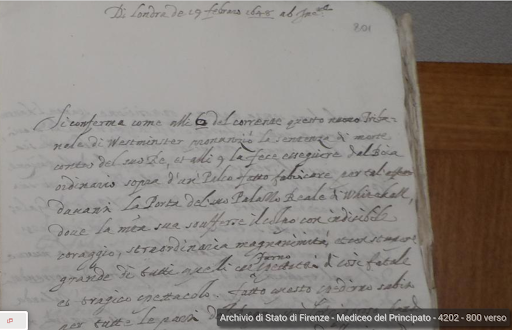 Di Londra de 19 febraro 1648 ab Inc.ne
801
Si conferma come alli 6 del corrente questo nuovo Tribu=
nale di Westminster pronuntiò la sentenza di morte
contro del suo Re, et alli 9 la fece esseguire dal Boia
ordinario sopra d'un Palco fatto fabricare per tal
davanti la Porta del suo Palazzo Reale di Whitehall,
dove la m.tà sua soufferse il colpo con indicibile
coraggio, straordinaria magnanimità, et con stupore
grande di tutti quelli
Torno
di così fatale
et tragico spettacolo. fatto questo
per tutte le
Archivio di Stato di Firenze - Mediceo del Principato - 4202 - 800 verso